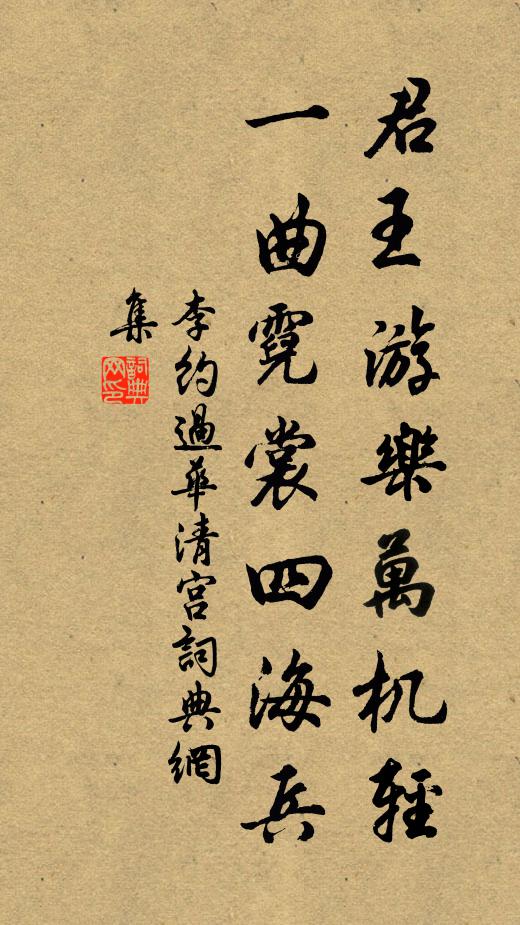 君王游樂萬机輕
一曲霓裳四海兵
李約過華清宮詞典網
集
詞典
网印